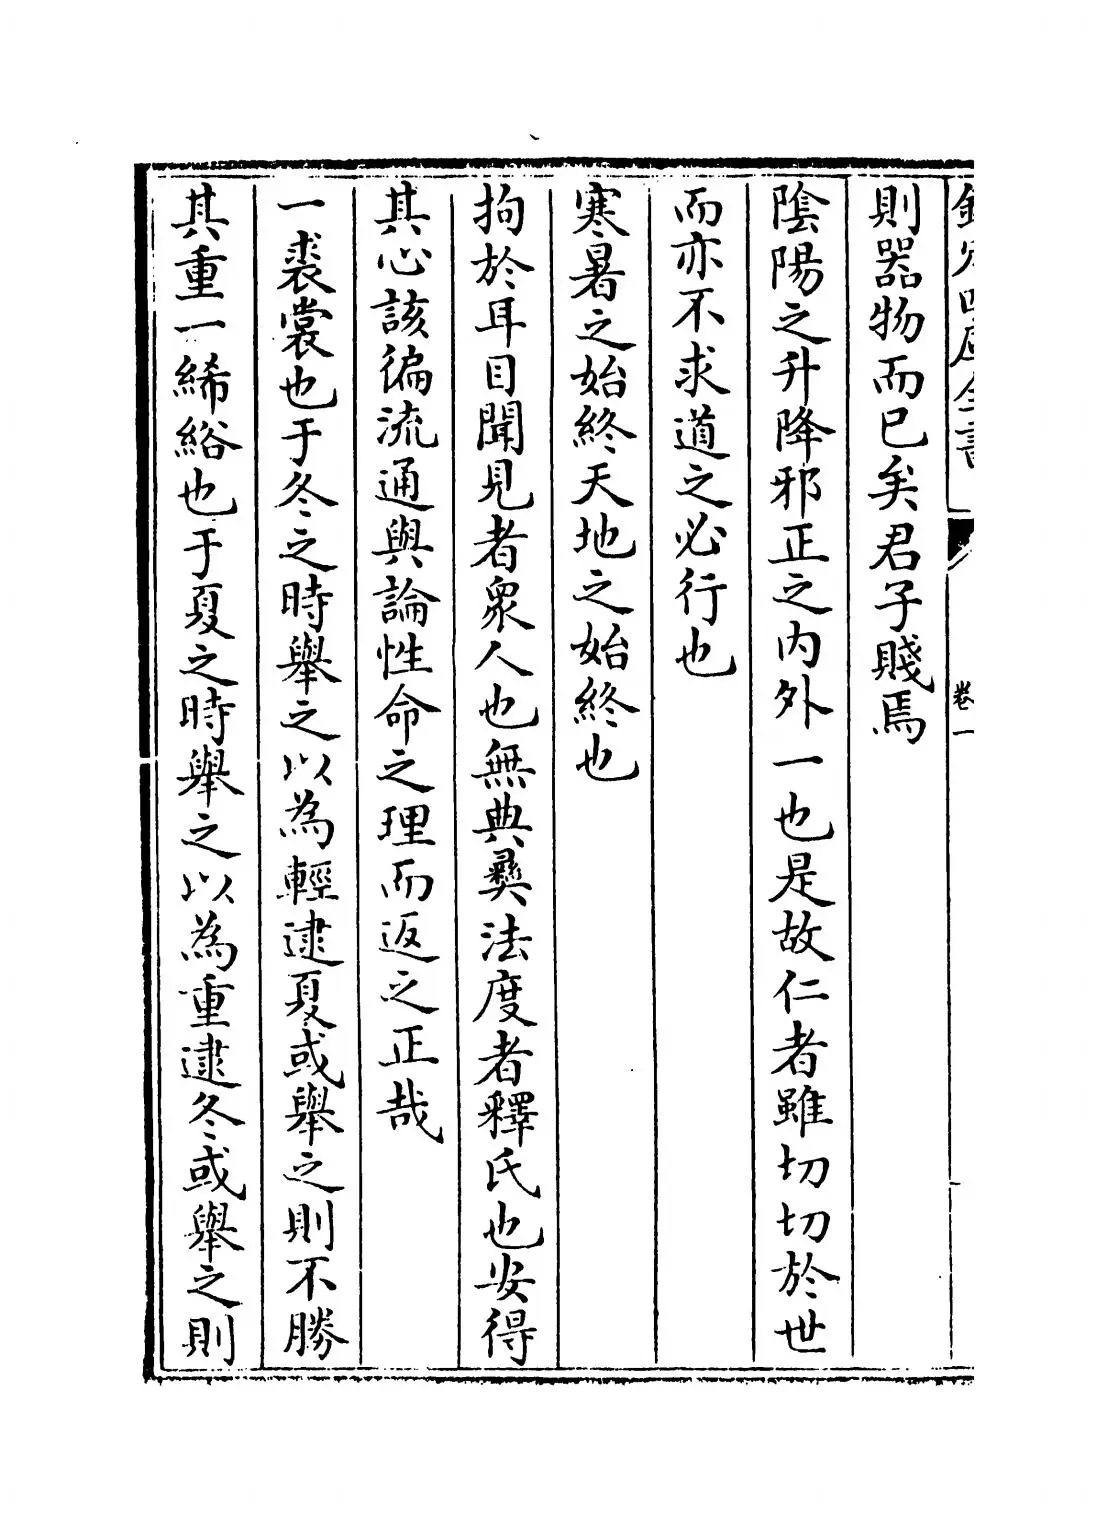 欽定四庫全書
卷一
則器物而已矣君子賤焉
陰陽之升降邪正之内外一也是故仁者雖切切於世
而亦不求道之必行也
寒暑之始終天地之始終也
拘於耳目聞見者衆人也無典彛法度者釋氏也安得
其心該徧流通與論性命之理而返之正哉
一裘裳也于冬之時舉之以為輕逮夏或舉之則不勝
其重一絺綌也于夏之時舉之以為重逮冬或舉之則